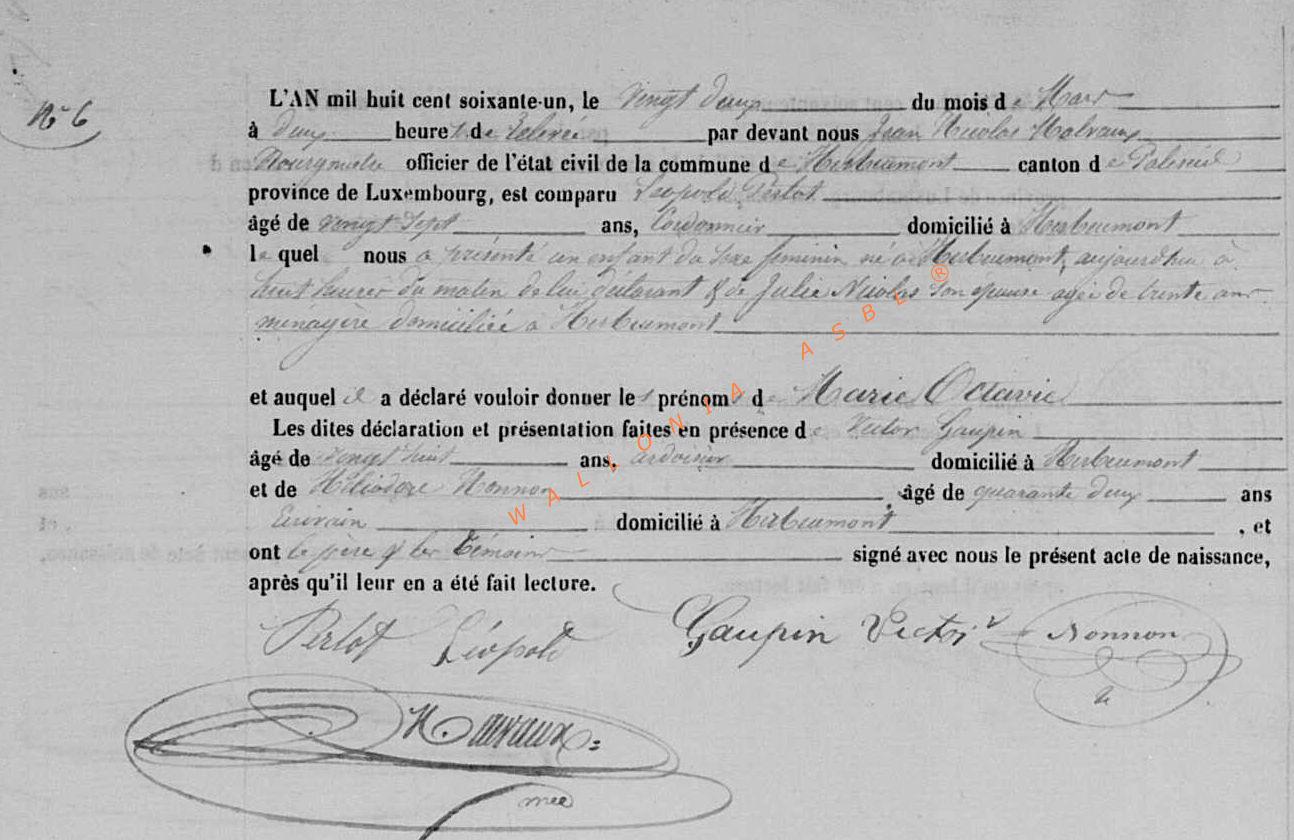 N° 6
L'AN mil huit cent soixante-un, le vingt deux du mois de Mars
à deux heures de relevée par devant nous Jean Nicolas Malvaux
Bourgmestre officier de l'état civil de la commune de Herbeumont canton de Paliseul
province de Luxembourg, est comparu Léopold Perlot
âgé de vingt sept ans, Cordonnier domicilié à Herbeumont
le quel nous a présenté un enfant du sexe feminin né à Herbeumont, aujourdhui à
huit heures du matin de lui déclarant & de Julie Nicolas son épouse agée de trente ans
menagere domiciliée à Herbeumont
et auquel il a déclaré vouloir donner les prénoms de Marie Octavie
Les dites déclaration et présentation faites en présence de Victor Gaupin
âgé de vingt huit ans, ardoisier domicilié à Herbeumont
et de Héliodore Nonnon, âgé de quarante deux ans
Ecrivain domicilié à Herbeumont, et
ont le père & les témoins signé avec nous le présent acte de naissance,
après qu'il leur en a été fait lecture.
Perlot Léopold Gaupin Victor Nonnon
WALLONIA ASBL ®